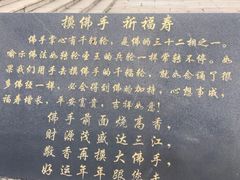 摸佛手 祈福寿
佛手掌心有千辐轮，是佛的三十二相之一。
喻示佛法如转轮圣王的兵轮一样常转不停。如
果我们用手去摸佛手的千辐轮，就如念诵了很
多佛经一样，必会得到佛的加持，心想事成，
福寿增长，平安富贵，吉祥如意！
佛手前面烧高香，
财源茂盛达三江，
敬香再摸大佛手，
好运年年